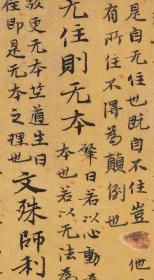 是自无住也既自不住豈他
有所住不得為顛倒也
无住則无本 肇曰若以心動
本也若以无法為
故更无本竺道生曰
住即是无本之理也 文殊師利